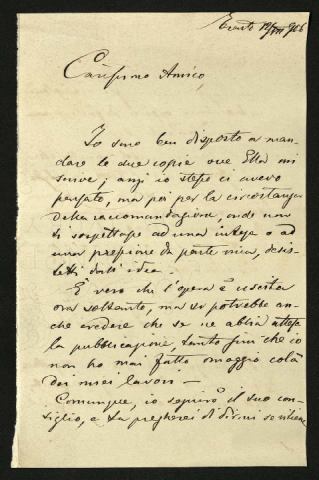 12/VIII 906
Carissimo Amico,
Io sono ben disposto a man-
dare le due copie ove Ella mi
scrive; anzi io stesso ci avevo
pensato, ma poi per la circostanza
della raccomandazione, onde non
si sospettasse ad una intesa o ad
una pressione da parte mia, desis-
tetti dall'idea.
È vero che l'opera è uscita
ora soltanto, ma si potrebbe an-
che credere che se ne abbia attesa
la pubblicazione, tanto più che io
non ho mai fatto omaggio colà
dei miei lavori —
Comunque, io seguirò il suo con-
siglio, e La pregherei di dirmi se ritiene